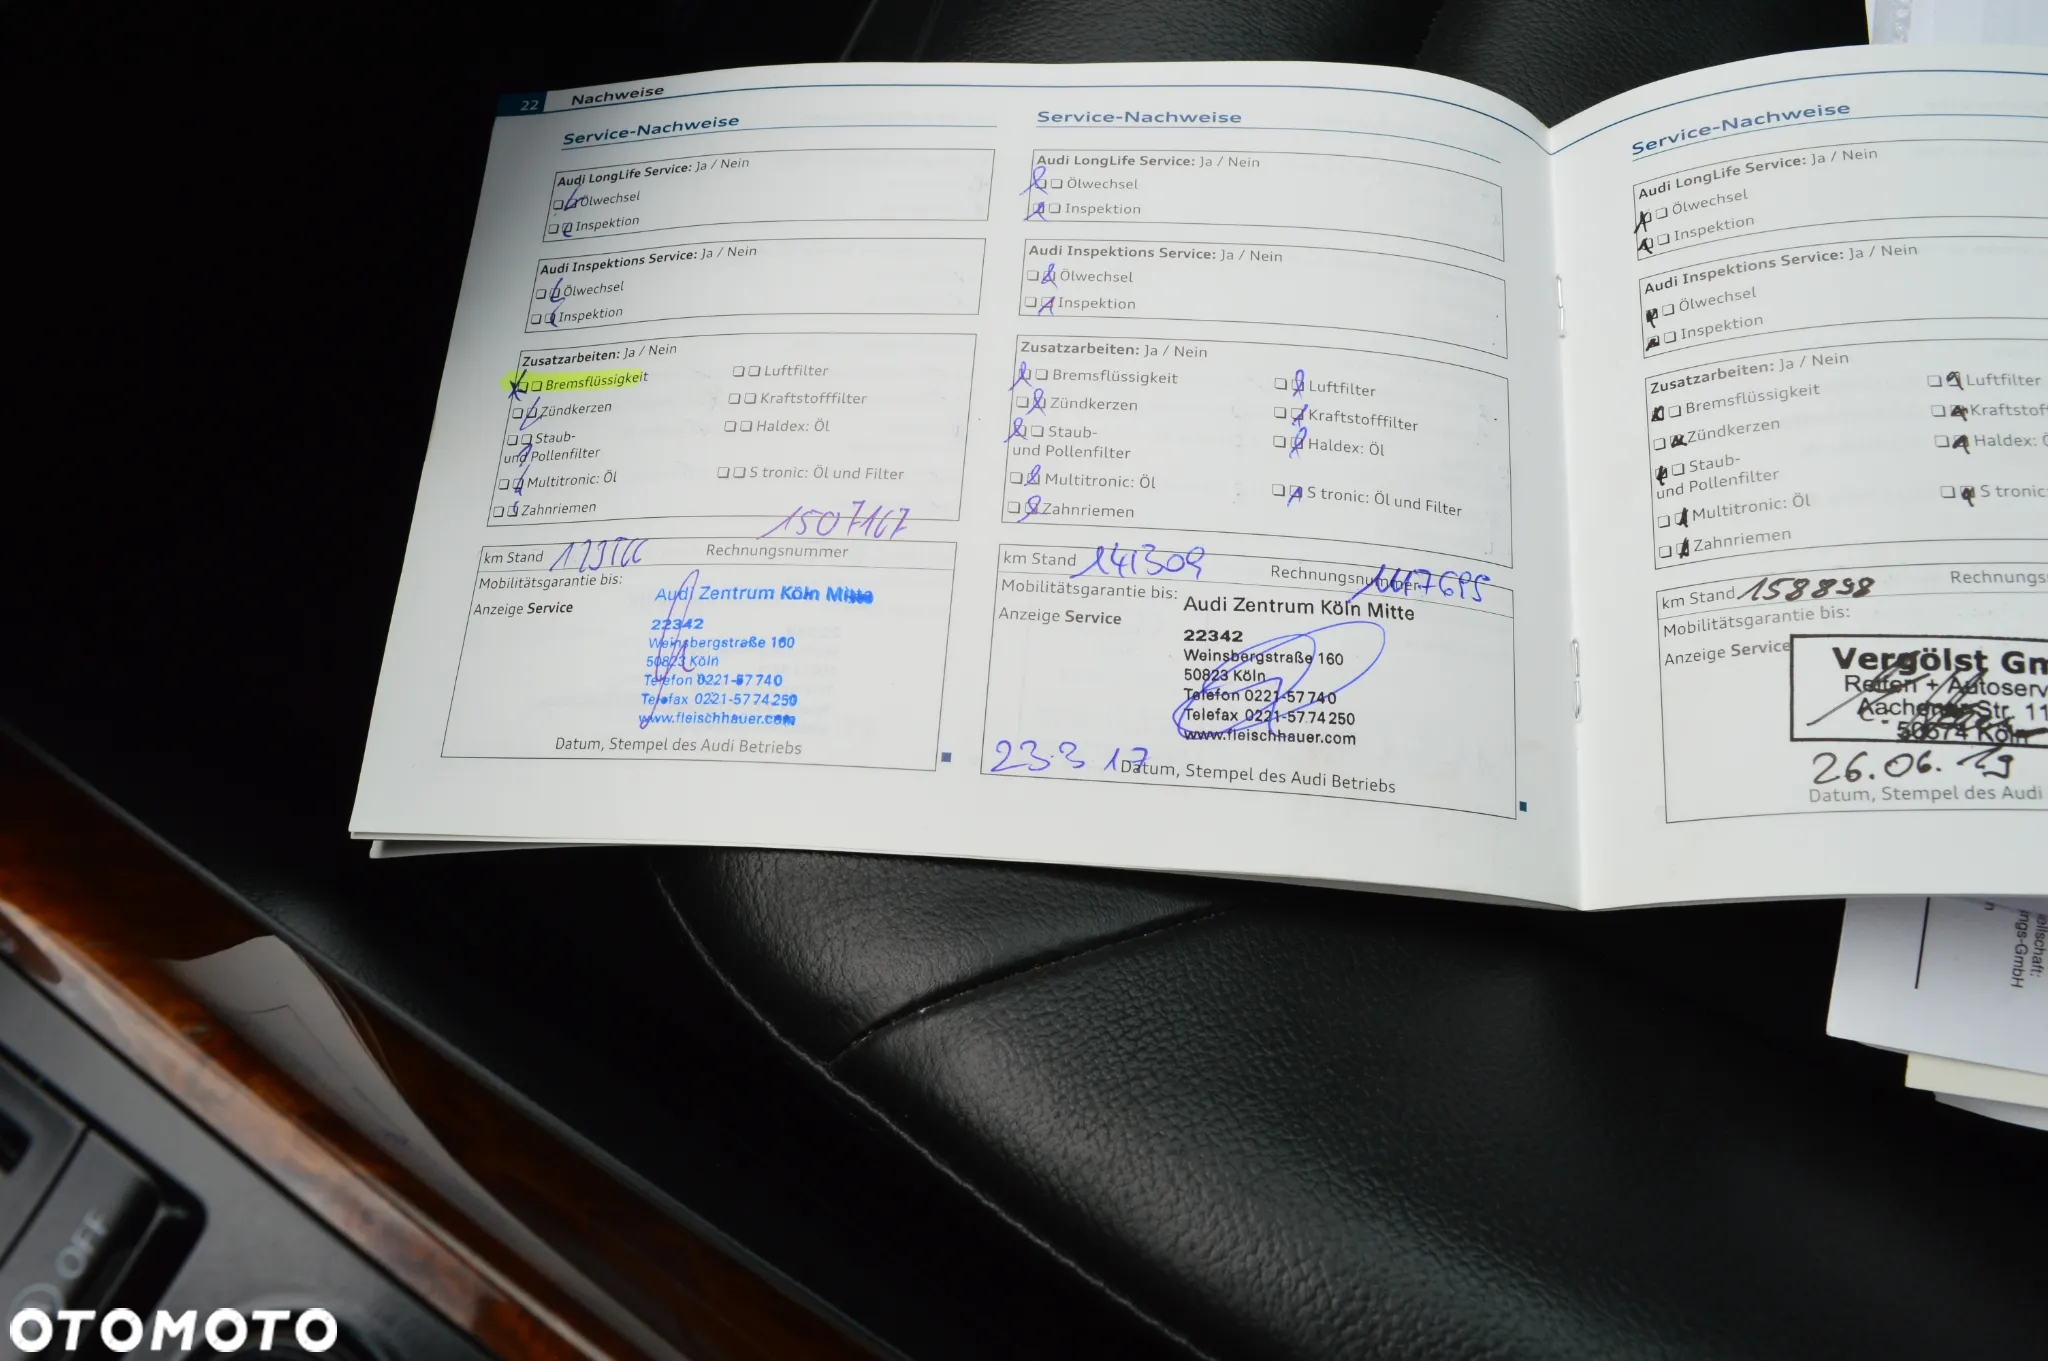 22 Nachweise
Service-Nachweise
Audi LongLife Service: Ja / Nein
Ölwechsel
Inspektion
Audi Inspektions Service: Ja / Nein
Ölwechsel
Inspektion
Zusatzarbeiten: Ja / Nein
Bremsflüssigkeit
Luftfilter
Zündkerzen
Kraftstofffilter
Staub-
und Pollenfilter
Haldex: Öl
Multitronic: Öl
S tronic: Öl und Filter
Zahnriemen
1507167
km Stand
Rechnungsnummer
Mobilitätsgarantie bis:
Anzeige Service
Audi Zentrum Köln Mitte
22342
Weinsbergstraße 160
50823 Köln
Telefon 0221-57740
Telefax 0221-5774250
www.fleischhauer.com
Datum, Stempel des Audi Betriebs
Service-Nachweise
Audi LongLife Service: Ja / Nein
Ölwechsel
Inspektion
Audi Inspektions Service: Ja / Nein
Ölwechsel
Inspektion
Zusatzarbeiten: Ja / Nein
Bremsflüssigkeit
Luftfilter
Zündkerzen
Kraftstofffilter
Staub-
und Pollenfilter
Haldex: Öl
Multitronic: Öl
S tronic: Öl und Filter
Zahnriemen
km Stand 141309
Rechnungsnummer
Mobilitätsgarantie bis:
Anzeige Service
Audi Zentrum Köln Mitte
22342
Weinsbergstraße 160
50823 Köln
Telefon 0221-57740
Telefax 0221-5774250
www.fleischhauer.com
23.3 17
Datum, Stempel des Audi Betriebs
Service-Nachweise
Audi LongLife Service: Ja / Nein
Ölwechsel
Inspektion
Audi Inspektions Service: Ja / Nein
Ölwechsel
Inspektion
Zusatzarbeiten: Ja / Nein
Bremsflüssigkeit
Luftfilter
Zündkerzen
Kraftstoff
Staub-
und Pollenfilter
Haldex:
Multitronic: Öl
S tronic:
Zahnriemen
km Stand 158898
Rechnungs
Mobilitätsgarantie bis:
Anzeige Service
Vergölst Gm
Reifen + Autoserv
Aachener Str. 11
50674 Köln
26.06.19
Datum, Stempel des Audi
ellschaft:
ngs-GmbH
OFF
OTOMOTO